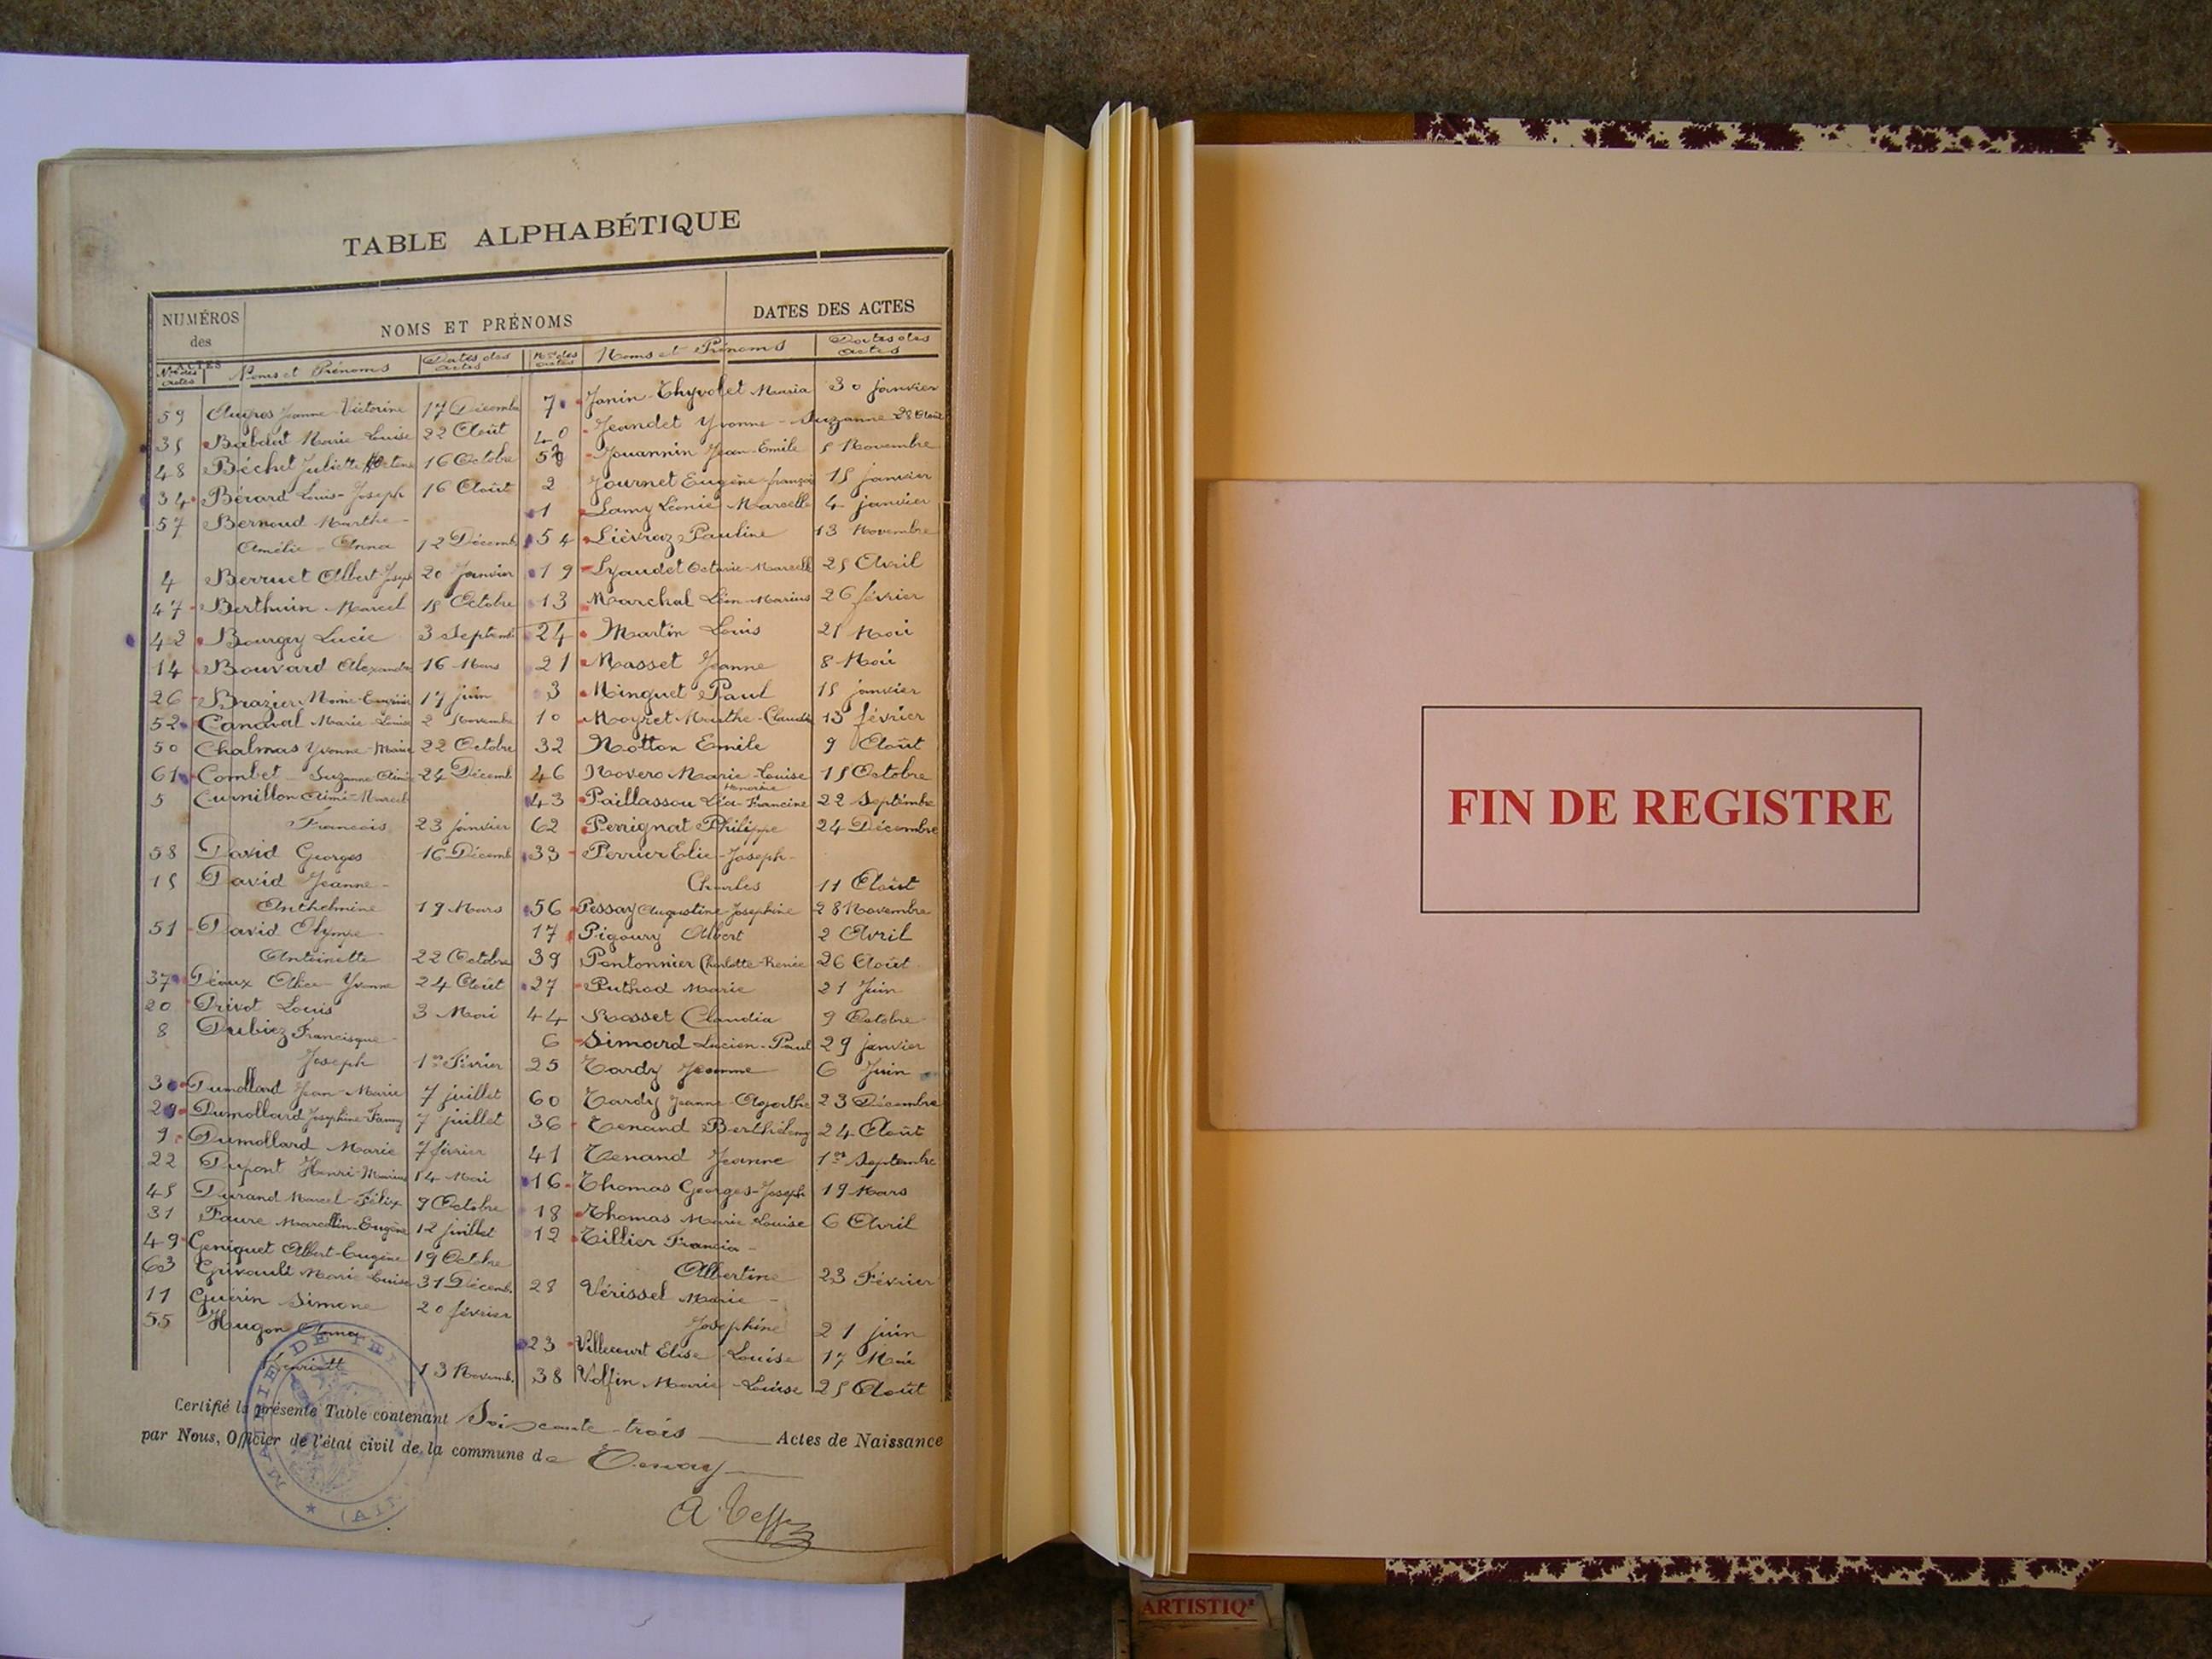 TABLE ALPHABÉTIQUE
NUMÉROS des ACTES
NOMS ET PRÉNOMS
DATES DES ACTES
Nos des actes Noms et Prénoms Dates des actes
59 Jeanne-Victorine 17 Décemb
35 Babolat Marie Louise 22 Août
48 Béchet Juliette 16 Octobre
34 Bérard Louis-Joseph 16 Août
57 Bernoud Marthe-
Amélie-Anna 12 Décemb
4 Berruet Albert-Joseph 20 Janvier
47 Berthuin Marcel 15 Octobre
42 Bourgey Lucie 3 Septemb
14 Bouvard Alexandre 16 Mars
26 Brazier Marie-Eugénie 17 juin
52 Canaval Marie-Louise 2 Novembre
50 Chalmas Yvonne-Marie 22 Octobre
61 Combet Suzanne Aimée 24 Décemb
5 Curnillon Aimé-Marcel
Francois 23 janvier
58 David Georges 16 Décemb
15 David Jeanne-
Anthelmine 19 Mars
51 David Olympe-
Antoinette 22 Octobre
37 Déaux Alice Yvonne 24 Août
20 Drivot Louis 3 Mai
8 Dubiez Francisque-
Joseph 1er Février
30 Dumollard Jean-Marie 7 juillet
29 Dumollard Joséphine-Fanny 7 juillet
9 Dumollard Marie 7 février
22 Dupont Henri-Marius 14 Mai
45 Durand Marcel-Félix 9 Octobre
31 Faure Marcellin-Eugène 12 juillet
49 Geniquet Albert-Eugène 19 Octobre
63 Grivault Marie Louise 31 Décemb.
11 Guérin Simone 20 février
55 Hugon Anna
Henriette 13 Novemb.
Nos des actes Noms et Prénoms Dates des actes
7 Janin-Thyvolet Maria 30 janvier
40 Jeandet Yvonne-Suzanne 28 Août
53 Jouannin Jean-Emile 5 Novembre
2 Journet Eugène-François 15 janvier
1 Lamy Léonie Marcelle 4 janvier
54 Lièvraz Pauline 13 Novembre
19 Lyaudet Octavie-Marcelle 25 Avril
13 Marchal Léon-Marius 26 février
24 Martin Louis 21 Mai
21 Masset Jeanne 8 Mai
3 Minguet Paul 15 janvier
10 Moyret Marthe-Claudia 13 février
32 Notton Emile 9 Août
46 Novero Marie-Louise 15 Octobre
Honorine
43 Paillassou Léa-Francine 22 Septembre
62 Perrignat Philippe 24 Décembre
33 Perrier Elie-Joseph-
Charles 11 Août
56 Pessay Augustine Joséphine 28 Novembre
17 Pigoury Albert 2 Avril
39 Pontonnier Charlotte-Renée 26 Août
27 Puthod Marie 21 Juin
44 Rosset Claudia 9 Octobre
6 Simard Lucien-Paul 29 janvier
25 Tardy Jeanne 6 Juin
60 Tardy Jeanne-Agathe 23 Décembre
36 Tenand Berthélemy 24 Août
41 Tenand Jeanne 1er Septembre
16 Thomas Georges-Joseph 19 Mars
18 Thomas Marie Louise 6 Avril
12 Tillier Francia-
Albertine 23 Février
28 Vérissel Marie-
Joséphine 21 juin
23 Villecourt Elise-Louise 17 Mai
38 Volfin Marie-Louise 25 Août
Certifié la présente Table contenant Soixante-trois Actes de Naissance
par Nous, Officier de l'état civil de la commune de Tenay
MAIRIE DE TE
(AI
FIN DE REGISTRE
ARTISTIQ